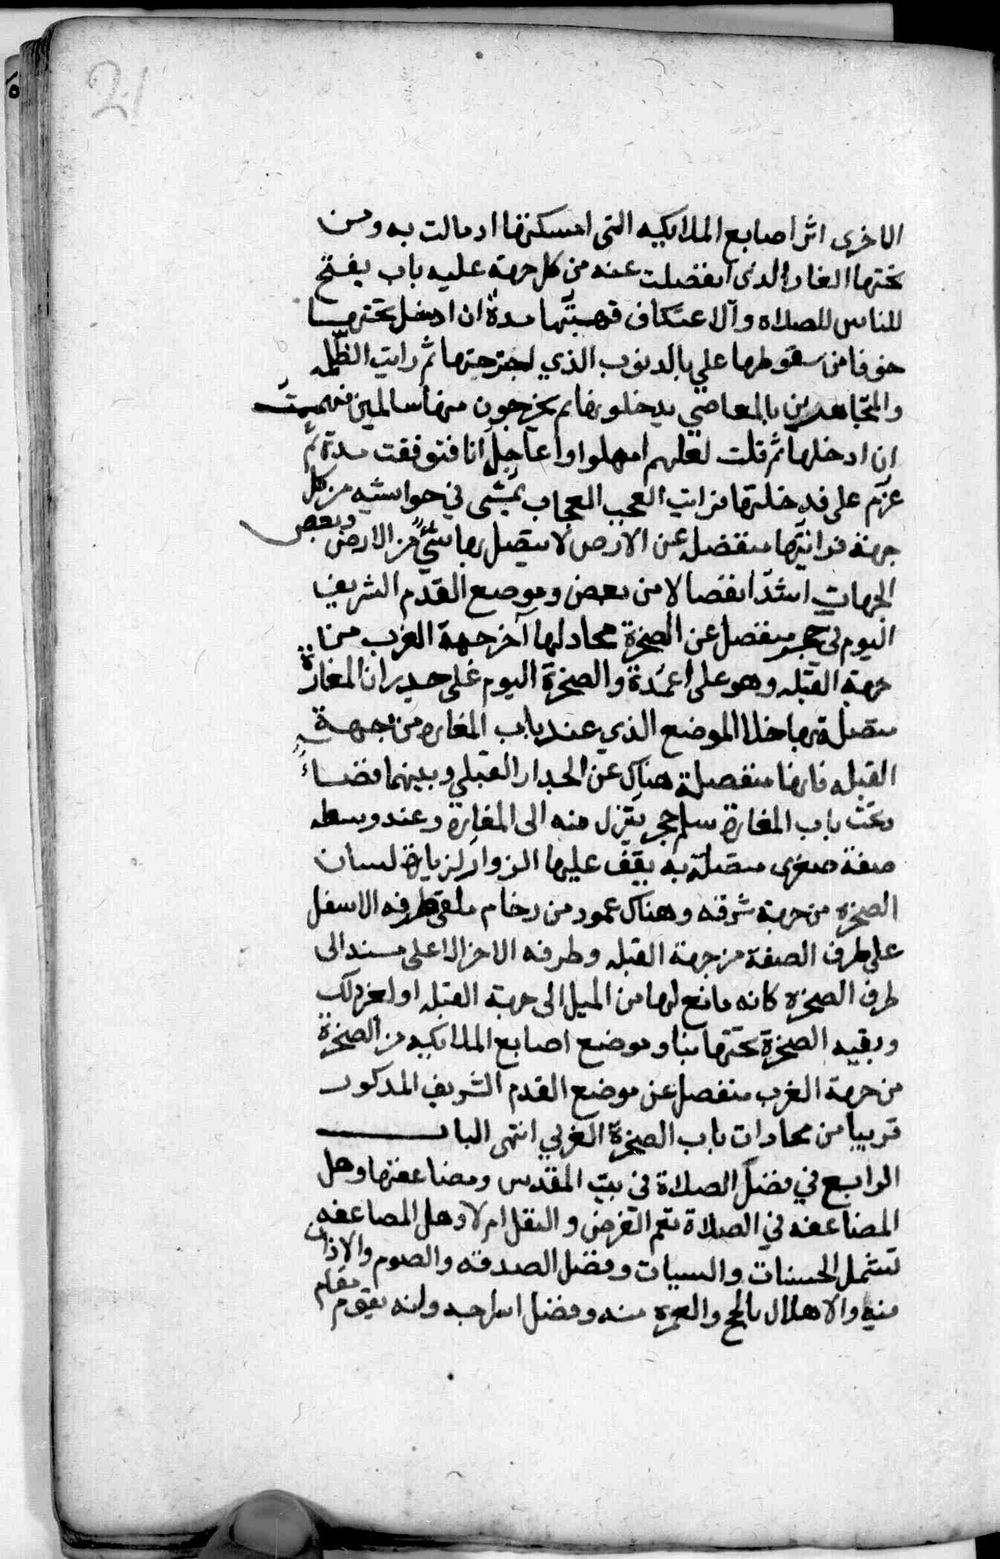 21
الاخرى اثر اصابع الملايكيه التى امسكتها اد مالت به ومن
تحتها الغار الدى انفصلت عنه من كل جهة عليه باب يفتح
للناس للصلاة والاعتكاف فهبتها مدة ان ادخل تحتها
خوفا من سقوطها علي بالدنوب الذي اجترحتها ثم رايت الظلمه
والمتجاهدين بالمعاصي يدخلونها ثم يخرجون منها سالمين فهممت
ان ادخلها ثم قلت لعلهم امهلوا واعاجل انا فتوقفت مدة ثم
عزم على فدخلتها فرايت العجب العجاب تمشى في حواشيه من كل
جهة فرايتها منفصله عن الارض لا يتصل بها شيء من الارض وبعض
الجهات اشد انفصالا من بعض وموضع القدم الشريف
اليوم فى حجر منفصل عن الصخرة محاد لها آخر جهة الغرب من
جهة القبله وهو على اعمدة والصخرة اليوم على جدران المغارة
متصلة بها خلا الموضع الذي عند باب المغاره من جهة
القبله فانها منفصلة هناك عن الجدار القبلي وبينهما فضاء
وتحت باب المغارة سلم حجر ينزل منه الى المغارة وعند وسطه
صفة صغرى متصلة به يقف عليها الزوار لزيارة لسان
الصخره من جهة شرقه وهناك عمود من رخام ملقى طرفه الاسفل
على طرف الصفة من جهة القبله وطرفه الاخر الاعلى مسند الى
طرف الصخره كانه مانع لها من الميل الى جهة القبله او لغير دلك
وبقيه الصخرة تحتها بنا وموضع اصابع الملايكيه من الصخرة
من جهة الغرب منفصل عن موضع القدم الشريف المدكور
قريبا من محادات باب الصخرة الغربي انتهى الباب
الرابع في فضل الصلاة في بيت المقدس ومضاعفتها وهل
المضاعفه في الصلاة تعم الفرض والنفل ام لا وهل المضاعفه
تشمل الحسنات والسيات وفضل الصدقه والصوم والاذان
فيه والاهلال بالحج والعمره منه وفضل اسراجه وانه يقوم مقام